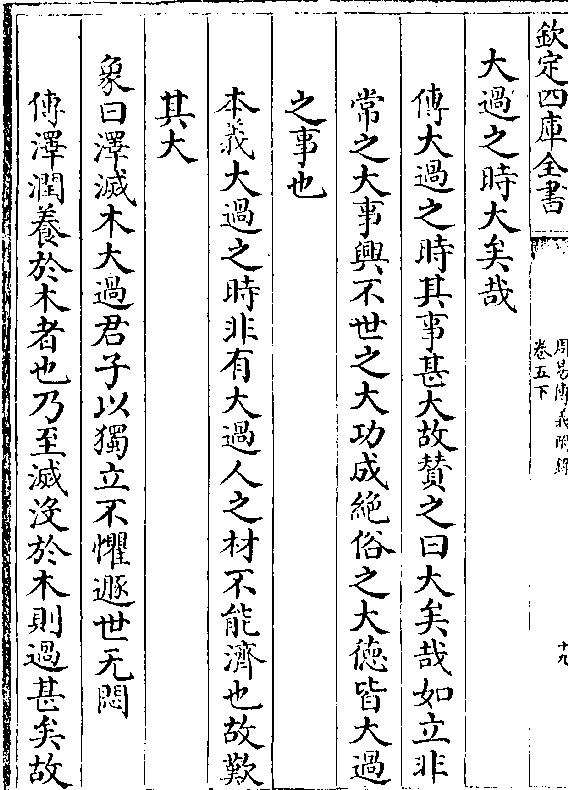 欽定四庫全書
周易傳義附録
卷五下
十九
大過之時大矣哉
傳大過之時其事甚大故賛之曰大矣哉如立非
常之大事興不世之大功成絶俗之大徳皆大過
之事也
本義大過之時非有大過人之材不能濟也故歎
其大
象曰澤滅木大過君子以獨立不懼遯世无悶
傳澤潤養於木者也乃至滅沒於木則過甚矣故